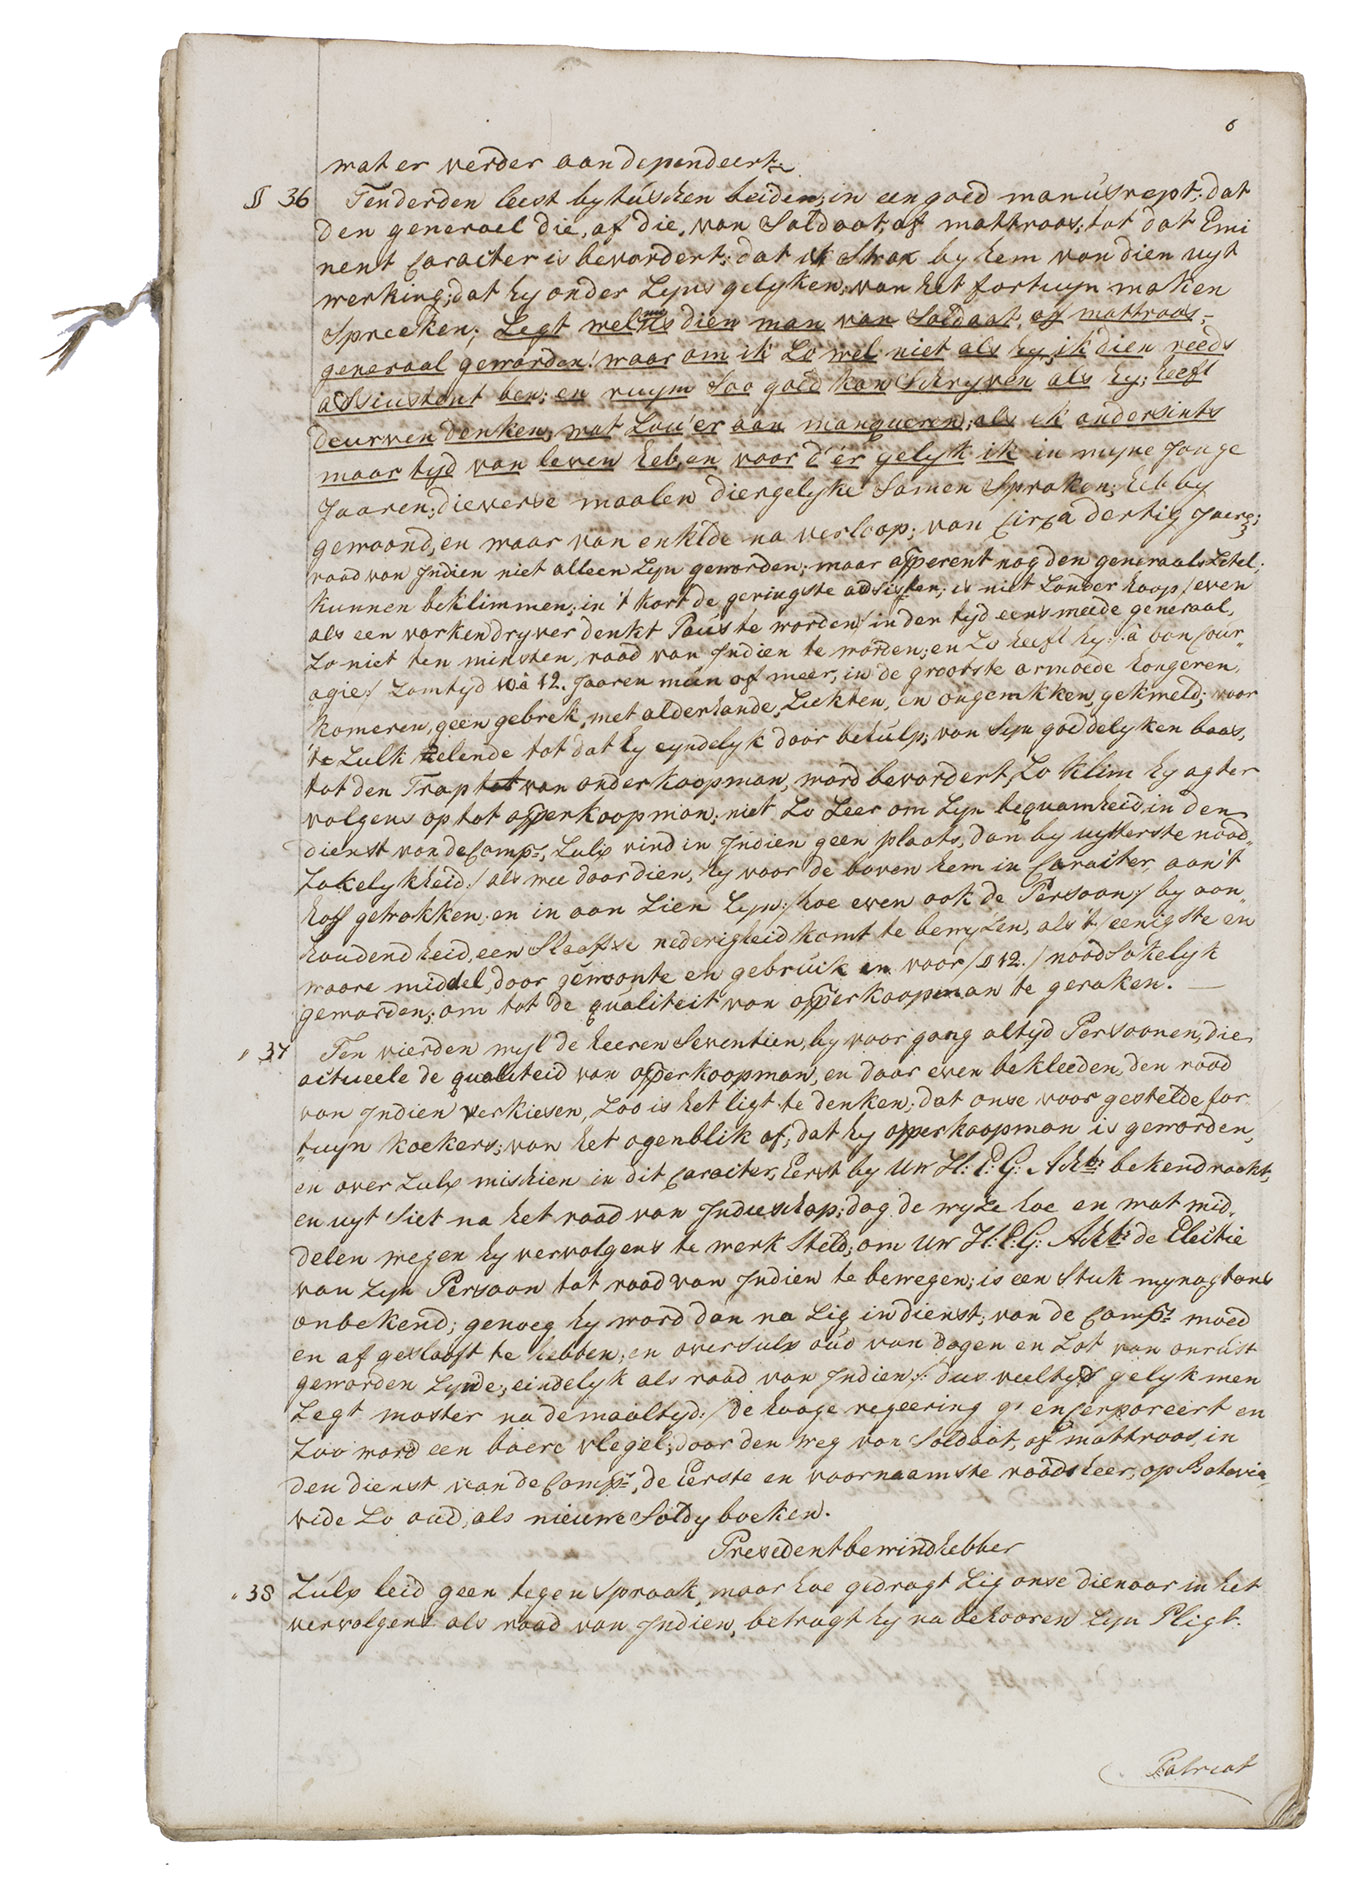 6
wat er verder aan dependeert.
§ 36 Ten derden leest hy tuschen beiden; in een goed manuscrept; dat
den generael die, of die, van Soldaat, of mattroos; tot dat Emi
nent Caracter is bevordert; dat is Strax by hem van dien uyt
werking; dat hy onder Zyns gelyken; van het fortuyn maken
Spreeken; Zegt wel is dien man van Soldaat, of mattroos =
generaal geworden! waar om ik Zo wel niet als hy; ik dien reeds
assiustent ben; en ruym Soo goed kan Schryven als hy; heeft
deurven denken; wat Zou'er aan manqueren; als ik andersints
maar tyd van leven heb, en waar d'er gelyk ik in myne Jonge
Jaaren; dieverse maalen diergelyke Samen Spraken; heb by
gewoond, en waar van enkelde na verloop; van Circa dertig Jaere;
raad van Indien niet alleen Zyn geworden; maar apperent nog den generaals Zetel;
kunnen beklimmen; in 't kort de geringste adsisten; is niet Zonder hoop / even
als een varkendryver denkt Paus te worden / in der tyd eens meede generaal,
Zo niet ten minsten, raad van Indien te worden; en Zo heeft hy /: à bon Cour
agie / Zomtyd 10 à 12. Jaaren min of meer, in de grootste armoede hongeren,
komeren, geen gebrek, met alderhande, Ziekten, en ongemkken, gekweld; voor
te Zulk Zelende tot dat hy eyndelyk door behulp; van Syn goddelyken baas,
tot den Trap van onderkoopman, word bevordert, Zo klim hy agter
volgens op tot opperkoopman; niet Zo Zeer om Zyn bequamheid in den
dienst van de Comp:, Zulx vind in Indien geen plaats, dan by uytterste nood
Zakelykheid / als wee daar dien, hy voor de boven hem in Caracter, aan't
hoff getrokken; en in aan Zien Zyn: / hoe even ook de Persoon / by aan
houdendheid, een Slaafse nederigheid komt te bewyZen, als 't / eenigste en
waare middel, door gewoonte en gebruik en voor / § 12. / noodSakelyk
geworden; om tot de qualiteit van opperkoopman te geraken.
" 37 Ten vierden wyl de heeren Seventien, by voor gang altyd Persoonen, die
actueele de qualiteid van opperkoopman, en daar even bekleeden, den raad
van Indien verkiesen, Zoo is het ligt te denken; dat onse voor gestelde for
"tuyn koekers; van het ogenblik af; dat hy opperkoopman is geworden,
en over Zulx mischien in dit Caracter, Eerst by Uw H: E: G: Achb: bekend raakt,
en uyt Siet na het raad van Indieschap; dog de wyze hoe en wat mid,
delen wegen hy vervolgens te werk Steld; om Uw H: E: G: Achb: de Electie
van Zyn Persoon tot raad van Indien te bewegen; is een Stuk my nogtans
onbekend; genoeg hy word dan na Zig in dienst; van de Comp: moed
en af geslooft te hebben; en over Sulx oud van dagen en Zot van onrust
geworden Zynde; eindelyk als raad van Indien /: dus veeltyds gelyk men
Zegt moster na de maaltyd: / de hooge regeering g' enCerporeert en
Zoo word een boere vlegel; door den weg van Soldaat, of mattroos, in
den dienst van de Comp:, de Eerste en voornaamste raadsheer, op Batavia,
vide Zo oud, als nieuwe Soldy boeken.
Presedent bewindhebber
" 38 Zulx leid geen tegen Spraak, maar hoe gedragt Zig onse dienaar in het
vervolgens als raad van Indien, betragt hy na behooren Zyn Pligt.
Patriot